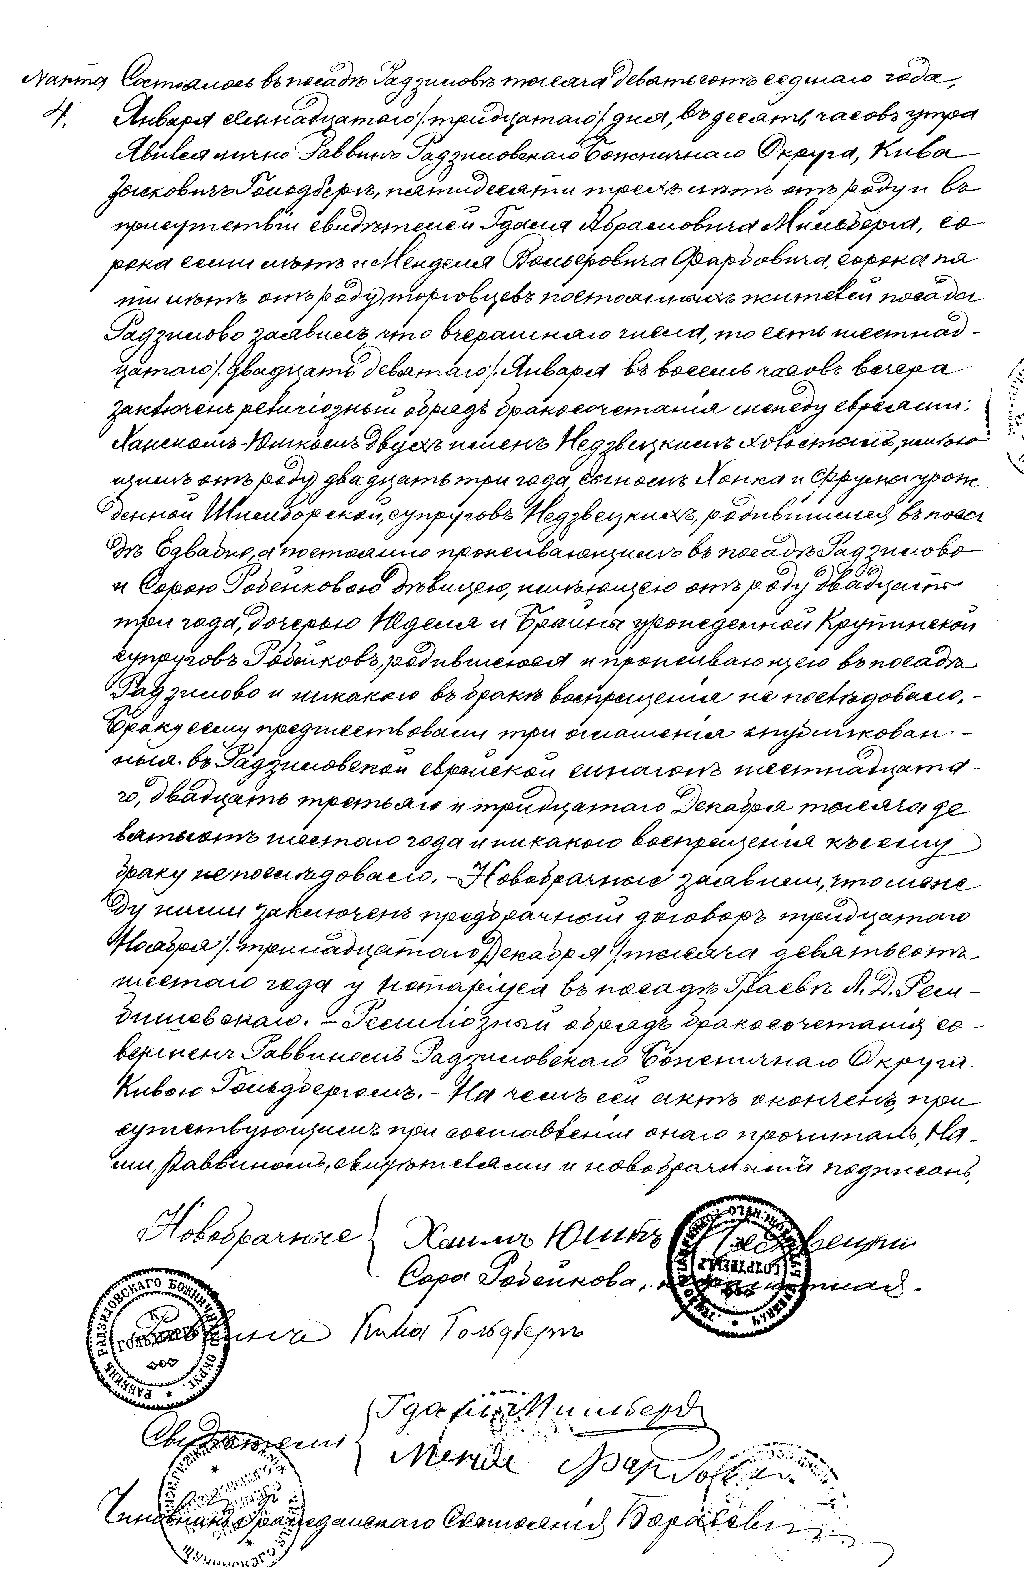 Состоялось въ посадѣ Радзиловѣ тысяча девятьсотъ седьмаго года,
4. Января семнадцатаго /тридцатаго/ дня, въ десять часовъ утра
Явился лично Раввинъ Радзиловскаго Божничнаго Округа, Кива
Гольдбергъ, пятидесяти трехъ лѣтъ отъ роду и въ
присутствіи свидѣтелей Гдаля Абрамовича Мильберга, со
рока семи лѣтъ и Менделя Вольфовича Фарбовича, сорока пя
ти лѣтъ отъ роду, торговцевъ постоянныхъ жителей посада
Радзилово заявилъ, что вчерашняго числа, то есть шестнад-
цатаго /двадцать девятаго/ Января въ восемь часовъ вечера
заключенъ религіозный обрядъ бракосочетанія между евреями:
Юшкомъ двухъ именъ Недзвецкимъ холостымъ, имѣю
щимъ отъ роду двадцать три года, сыномъ и Фрумы урож
денной супруговъ Недзвецкихъ, родившимся въ поса
дѣ Едвабно, а постоянно проживающимъ въ посадѣ Радзилово
и Сорою Робейковою дѣвицею, имѣющею отъ роду двадцать
три года, дочерью и Брайны урожденной Крупинской
супруговъ Робейковъ, родившеюся и проживающею въ посадѣ
Радзилово и никакого въ бракѣ воспрещенія не послѣдовало.-
Браку сему предшествовали три оглашенія опубликован-
ныя въ Радзиловской еврейской синагогѣ шестнадцата-
го, двадцать третьяго и тридцатаго Декабря тысяча де
вятьсотъ шестаго года и никакого воспрещенія къ сему
браку не послѣдовало. - Новобрачные заявили, что меж
ду ними заключенъ предбрачный договоръ тридцатаго
Ноября /тринадцатаго Декабря/ тысяча девятьсотъ
шестаго года у Нотаріуса въ посадѣ Граевѣ
- Религіозный обрядъ бракосочетанія со-
вершенъ Раввиномъ Радзиловскаго Божничнаго Округа
Кивою Гольдбергомъ. - На чемъ сей актъ оконченъ, при
сутствующимъ при составленіи онаго прочитанъ, На-
ми, Раввиномъ, свидѣтелями и новобрачными подписанъ,
Новобрачные { Хаимъ Юшкъ
Сора Робейкова,
РАВВИНЪ РАДЗИЛОВСКАГО БОЖНИЧНАГО ОКРУГ.
Кива Гольдбергъ
Свидѣтели { Гдаля Мильберг
Мендель
Чиновникъ Гражданскаго Состоянія